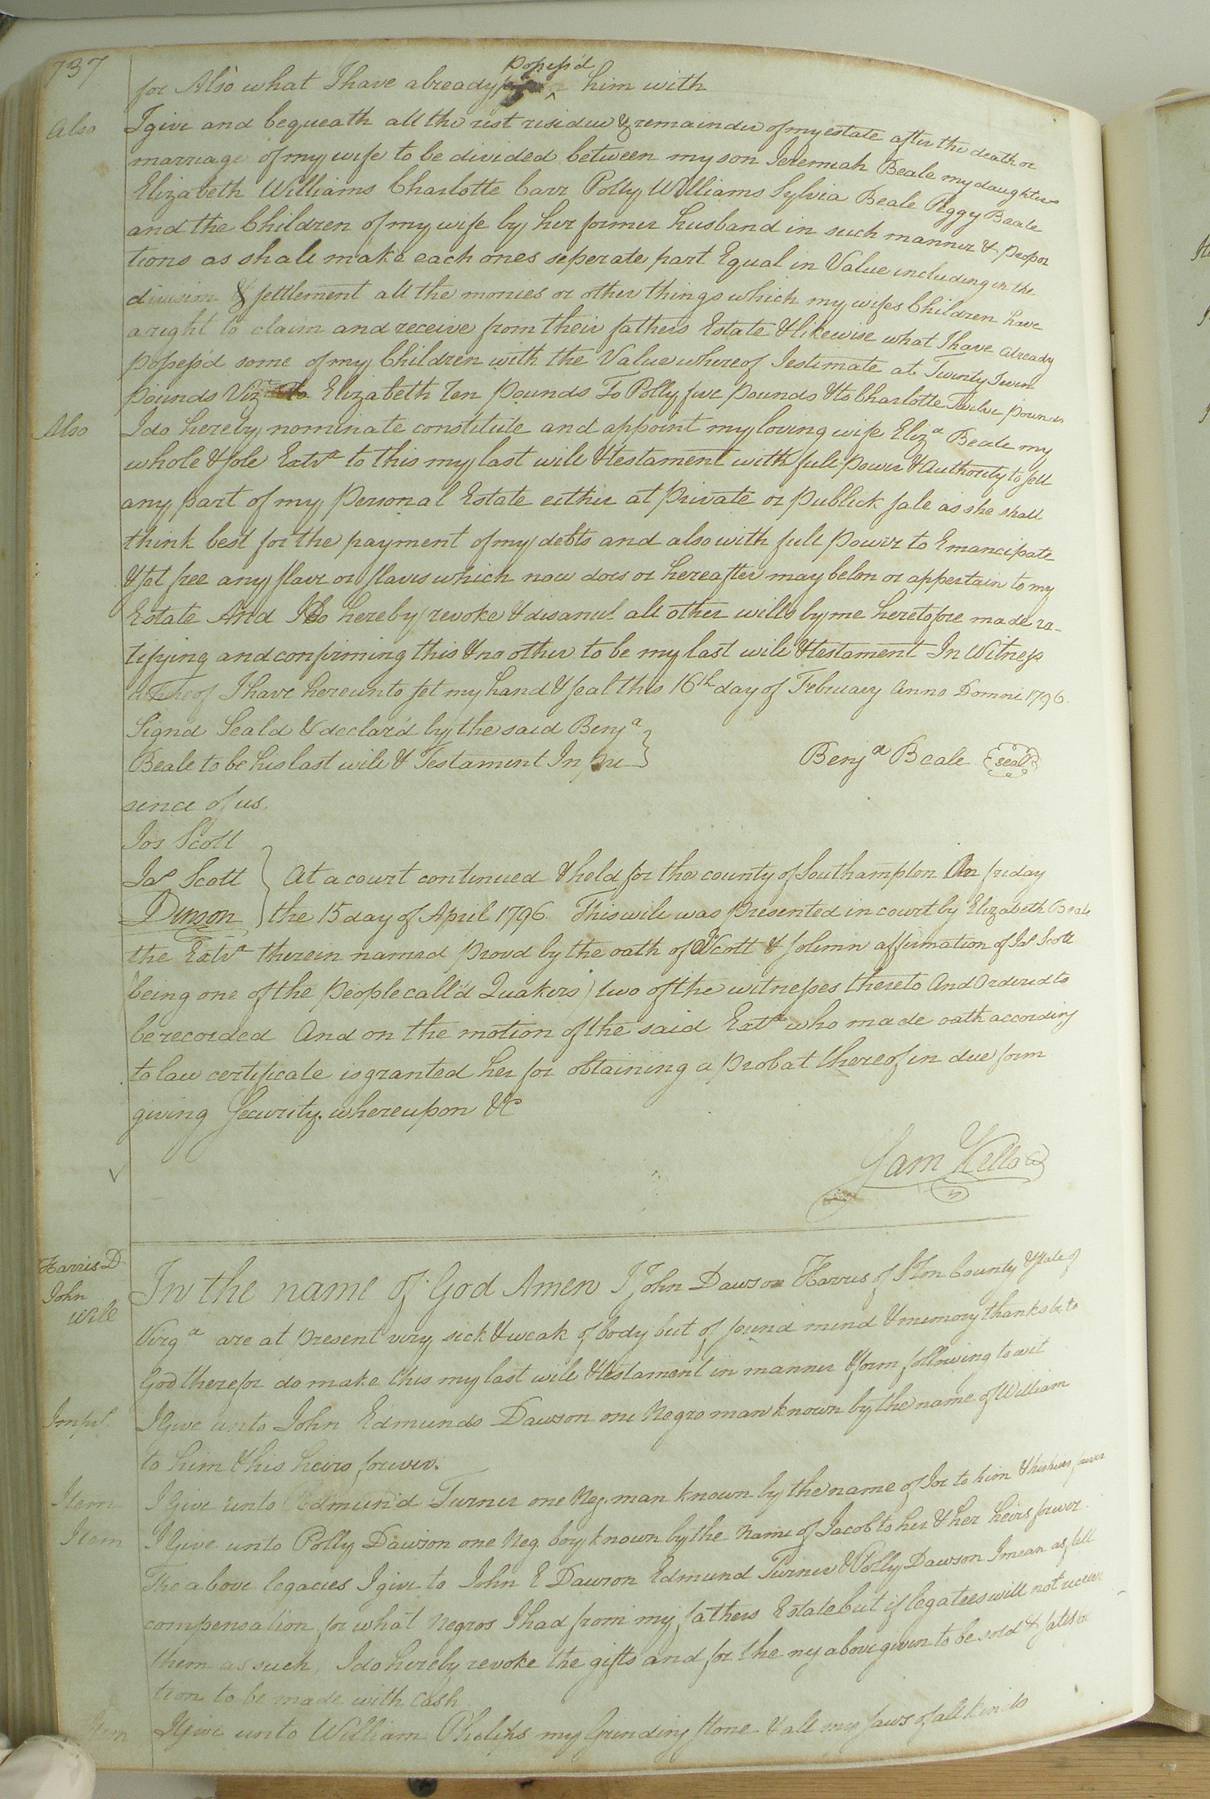 737
for Also what I have already possess'd him with
Also I give and bequeath all the rest residue & remainder of my estate after the death or
marriage of my wife to be divided between my son Jeremiah Beale my daughters
Elizabeth Williams Charlotte Carr Polly Williams Sylvia Beale Peggy Beale
and the Children of my wife by her former husband in such manner & propor
tions as shall make each ones seperate part Equal in Value including in the
division & settlement all the monies or other things which my wifes Children have
a right to claim and receive from their fathers Estate & likewise what I have already
possess'd some of my Children with the Value whereof I estimate at Twenty Seven
pounds Viz to Elizabeth Ten pounds To Polly five pounds & to Charlotte Twelve pounds
Also I do hereby nominate constitute and appoint my loving wife Eliza Beale my
whole & sole Extrx to this my last will & testament with full power & Authority to sell
any part of my personal Estate either at private or publick sale as she shall
think best for the payment of my debts and also with full power to Emancipate
& set free any slave or slaves which now does or hereafter may belon or appertain to my
Estate And I Do hereby revoke & disanul all other wills by me heretofore made ra-
tifying and confirming this & no other to be my last will & testament In Witness
whereof I have hereunto set my hand & seal this 16th day of February Anno Domni 1796
Signd Seald & declar'd by the said Benja
Beale to be his last will & Testament In pre Benja Beale seal
sence of us
Jos Scott
Jas Scott At a court continued & held for the county of Southampton On friday
Denson the 15 day of April 1796 This will was presented in court by Elizabeth Beale
the Extrx therein named provd by the oath of Scott & solemn affirmation of Jas Scott
(being one of the people call'd Quakers) two of the witnesses thereto And Ordered to
be recorded And on the motion of the said Extrx who made oath according
to law certificate is granted her for obtaining a probat thereof in due form
giving Security whereupon &c
Sam Kello
Harris D
John
will
In the name of God Amen I John Dawson Harris of S'Ton County & State of
Virga are at present very sick & weak of body but of sound mind & memory thanks be to
God therefor do make this my last will & testament in manner & form following to wit
I Give unto John Edmunds Dawson one Negro man known by the name of William
to him & his heirs forever.
Item I Give unto Edmund Turner one Neg. man known by the name of Joe to him & his heirs forever
Item I Give unto Polly Dawson one Neg boy known by the name of Jacob to her & her heirs forever
The above legacies I give to John E Dawson Edmund Turner & Polly Dawson I mean as full
compensation for what Negros I had from my fathers Estate but if legatees will not receive
them as such I do hereby revoke the gifts and for the above given to be sold & satisfac
tion to be made with cash
Item I Give unto William Phelips my Grinding stone & all my saws of all kinds